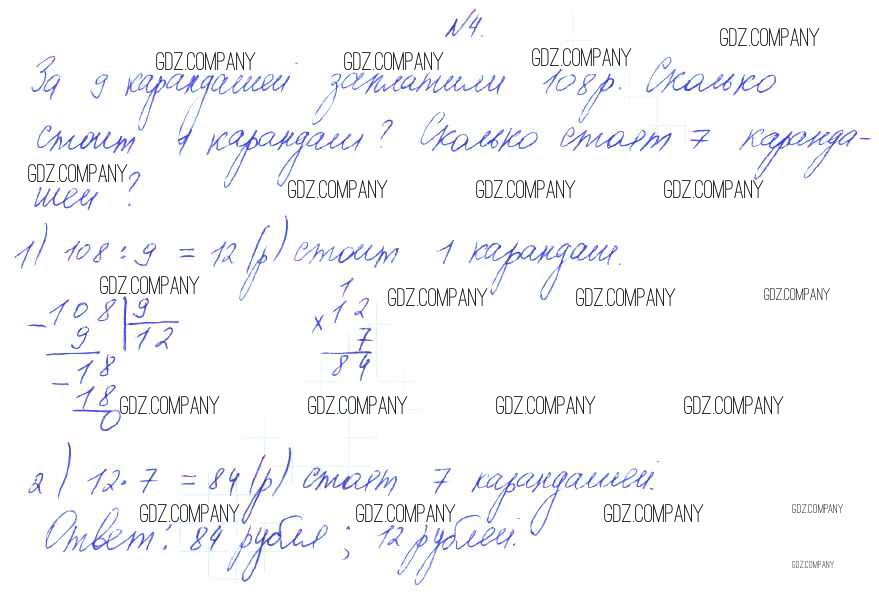 N4.
GDZ.COMPANY
GDZ.COMPANY GDZ.COMPANY GDZ.COMPANY
За 9 карандашей заплатили 108р. Сколько
стоит 1 карандаш? Сколько стоят 7 каранда-
GDZ.COMPANY
шей?
GDZ.COMPANY GDZ.COMPANY GDZ.COMPANY
1) 108 : 9 = 12 (р) стоит 1 карандаш.
GDZ.COMPANY GDZ.COMPANY GDZ.COMPANY GDZ.COMPANY
-108 | 9
9 12
-18
18
0
1
× 12
7
84
GDZ.COMPANY GDZ.COMPANY GDZ.COMPANY GDZ.COMPANY
2) 12 · 7 = 84 (р) стоят 7 карандашей.
GDZ.COMPANY GDZ.COMPANY GDZ.COMPANY GDZ.COMPANY
Ответ: 84 рубля; 12 рублей.
GDZ.COMPANY